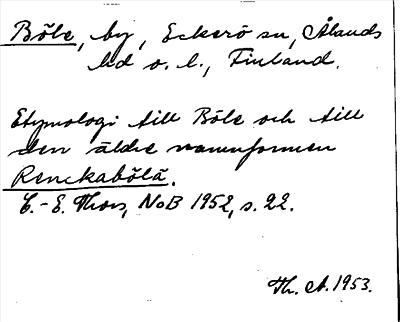 Böle, by, Eckerö sn, Ålands
hd o. l., Finland.
Etymologi till Böle och till
den äldre namnformen
Renckabölä.
C.-E. Thors, NoB 1952, s. 22.
Th. A. 1953.